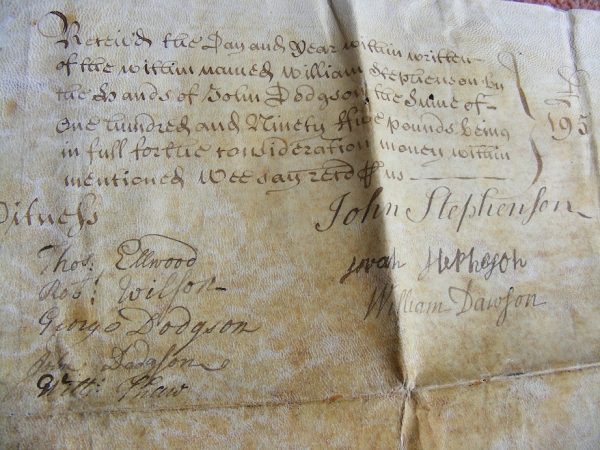 Receiv'd the Day and Year within written
of the within named William Stephenson by
the Hands of John Dodgson the Sume of
One hundred and Ninety five pounds being
in full for the consideration money within
mentioned Wee say recd p us
195
Witness
John Stephenson
Thos: Ellwood
Robt: Wilson
George Dodgson
John Dodgson
Will: Shaw
William Dawson